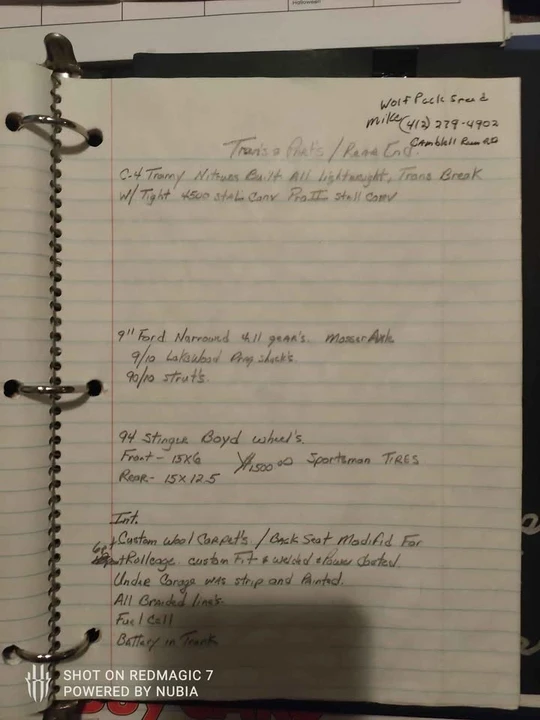 Halloween
Wolf Pack Speed
Mike (412) 279-4902
Cambbell Run RD
Trans's Part's / Rear End.
C-4 Tranny Nitrous Built All Lightweight, Trans Break
W/ Tight 4500 stall Conv Pro II stall conv
9" Ford Narrowed 4.11 gear's. Mosser Axle
9/10 Lakewood Drag shock's.
90/10 strut's.
94 Stinger Boyd wheel's.
Front - 15x6
$1500.00 Sportsman TIRES
Rear - 15x12.5
Int.
Custom Wool Carpet's / Back Seat Modifid For
Rollcage. custom Fit & welded & Power Coated
Under Carage was strip and Painted.
All Braided line's.
Fuel Cell
Battery in Trunk
SHOT ON REDMAGIC 7
POWERED BY NUBIA